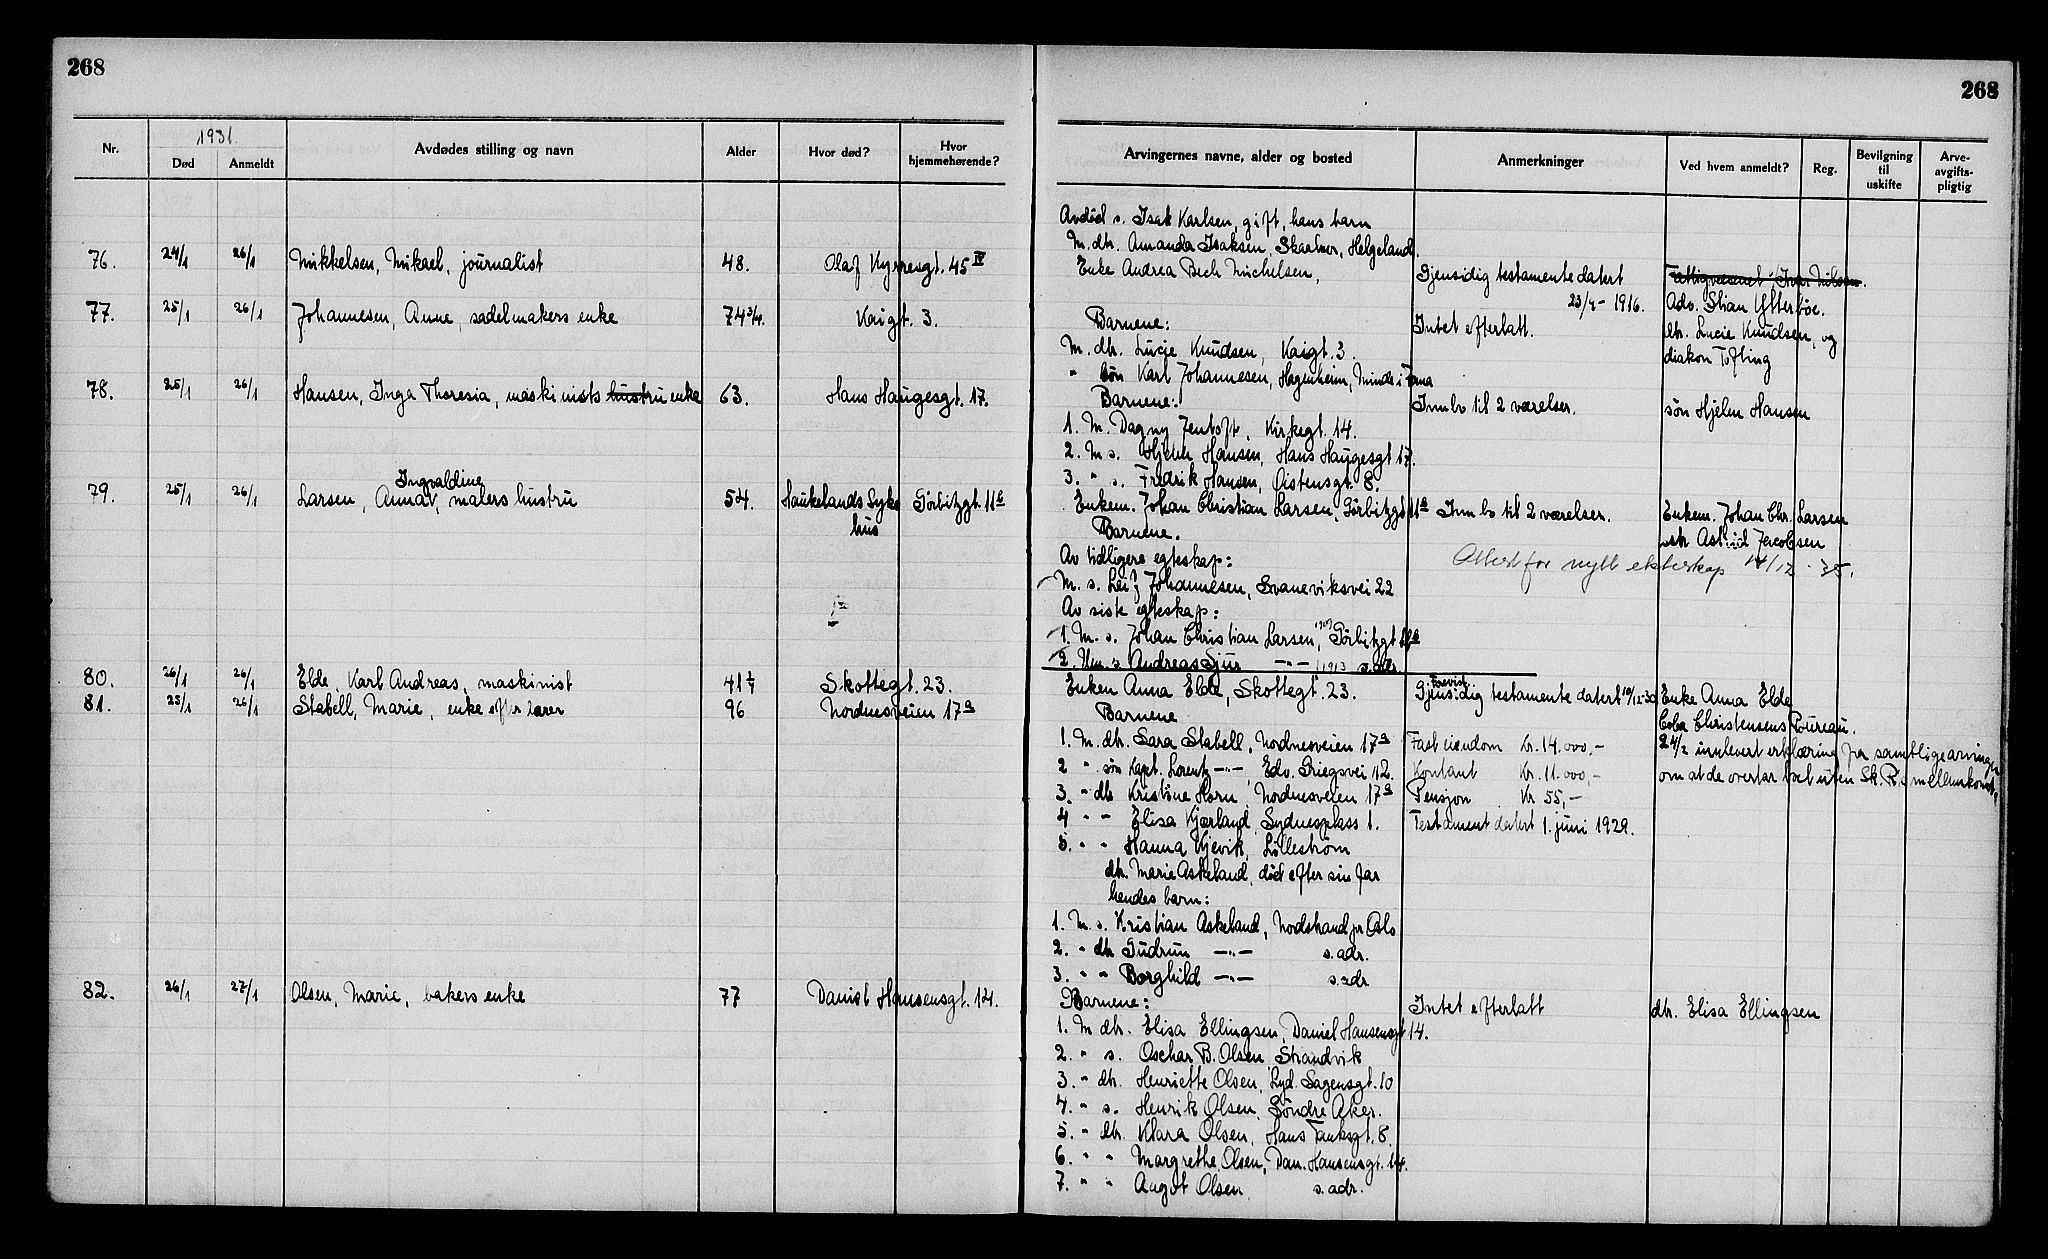 268
268
Nr.
1931.
Død
Anmeldt
Avdødes stilling og navn
Alder
Hvor død?
Hvor hjemmehørende?
Arvingernes navne, alder og bosted
Anmerkninger
Ved hvem anmeldt?
Reg.
Bevilgning til uskifte
Arve-avgifts-pligtig
Avdød s. Isak Karlsen, gift, hans barn
M. dtr. Amanda Isaksen, Helgeland.
76. 24/1 26/1 Mikkelsen, Mikael, journalist 48. Olaf Kyrresgt. 45 IV
Enke Andrea Bech Michelsen, Gjensidig testamente datert Fattigvæsenet
23/4 - 1916. Adv. Stian Ytterbøe.
77. 25/1 26/1 Johannesen, Anne, sadelmakers enke 74 3/4. Kaigt. 3.
Barnene: Intet efterlatt. dtr. Lucie Knudsen, og
M. dtr. Lucie Knudsen, Kaigt. 3. diakon Tofting
" søn Karl Johannesen, Hagenheim, Minde i Fana
78. 25/1 26/1 Hansen, Inga Theresia, maskinists hustru enke 63. Hans Haugesgt. 17.
Barnene: Innbo til 2 værelser. søn Hjelm Hansen
1. M. Dagny Jentoft, Kirkegt. 14.
2. M s. Hjelm Hansen, Hans Haugesgt 17.
3. " s. Fredrik Hansen, Øistensgt. 8.
Ingvaldine
79. 25/1 26/1 Larsen, Anna, malers hustru 54. Haukelands Syke Gørbitzgt. 11c
hus
Enkem. Johan Christian Larsen, Gørbitzgt 11c Innbo til 2 værelser. Enkem. Johan Chr. Larsen
Barnene. Astrid Jacobsen
Av tidligere egteskap: Attest for nytt ekteskap 14/12 - 35.
M. s. Leif Johannesen, Svaneviksvei 22
Av siste egteskap:
1. M. s. Johan Christian Larsen, 1909 Gørbitzgt 11c
2. Um. s. Andreas Sjur —"— 1913 s. adr.
80. 26/1 26/1 Elde, Karl Andreas, maskinist 41 1/4 Skottegt. 23.
Enken Anna Elde, Skottegt. 23. Gjensidig testamente datert 10/12-30 Enke Anna Elde
Forevist.
81. 25/1 26/1 Stabell, Marie, enke efter lærer 96 Nordnesveien 17a
Barnene Christensens Bureau.
1. M. dtr. Sara Stabell, Nordnesveien 17a Fast eiendom kr. 14.000,- 24/2 innlevert erklæring fra samtlige arvinger
2 " søn Kapt. Lorentz —"—, Edv. Griegsvei 12. Kontant Kr. 11.000,- om at de overtar boet uten Sk. R.s mellemkomst.
3. " dtr Kristine Horn, Nordnesveien 17a Pensjon Kr 55,-
4 " " Elisa Kjærland, Sydnesplass 1. Testament datert 1. juni 1929.
5. " " Hanna Kjevik, Lillestrøm
dtr. Marie Askeland, død efter sin far
hendes barn:
1. M. s. Kristian Askeland, Nordstrand pr Oslo
2. " dtr Gudrun —"— s. adr.
3. " " Borghild —"— s. adr
82. 26/1 27/1 Olsen, Marie, bakers enke 77 Daniel Hansensgt. 14.
Barnene: Intet efterlatt dtr. Elisa Ellingsen
1. M dtr. Elisa Ellingsen, Daniel Hansensgt 14.
2. " s. Oschar B. Olsen, Strandvik
3. " dtr. Henriette Olsen, Lyd. Sagensgt. 10
4. " s. Henrik Olsen, Søndre Aker.
5. " dtr. Klara Olsen, Hans Tanksgt. 8.
6. " " Margrethe Olsen, Dan. Hansensgt. 14.
7. " " Augot Olsen s. adr.